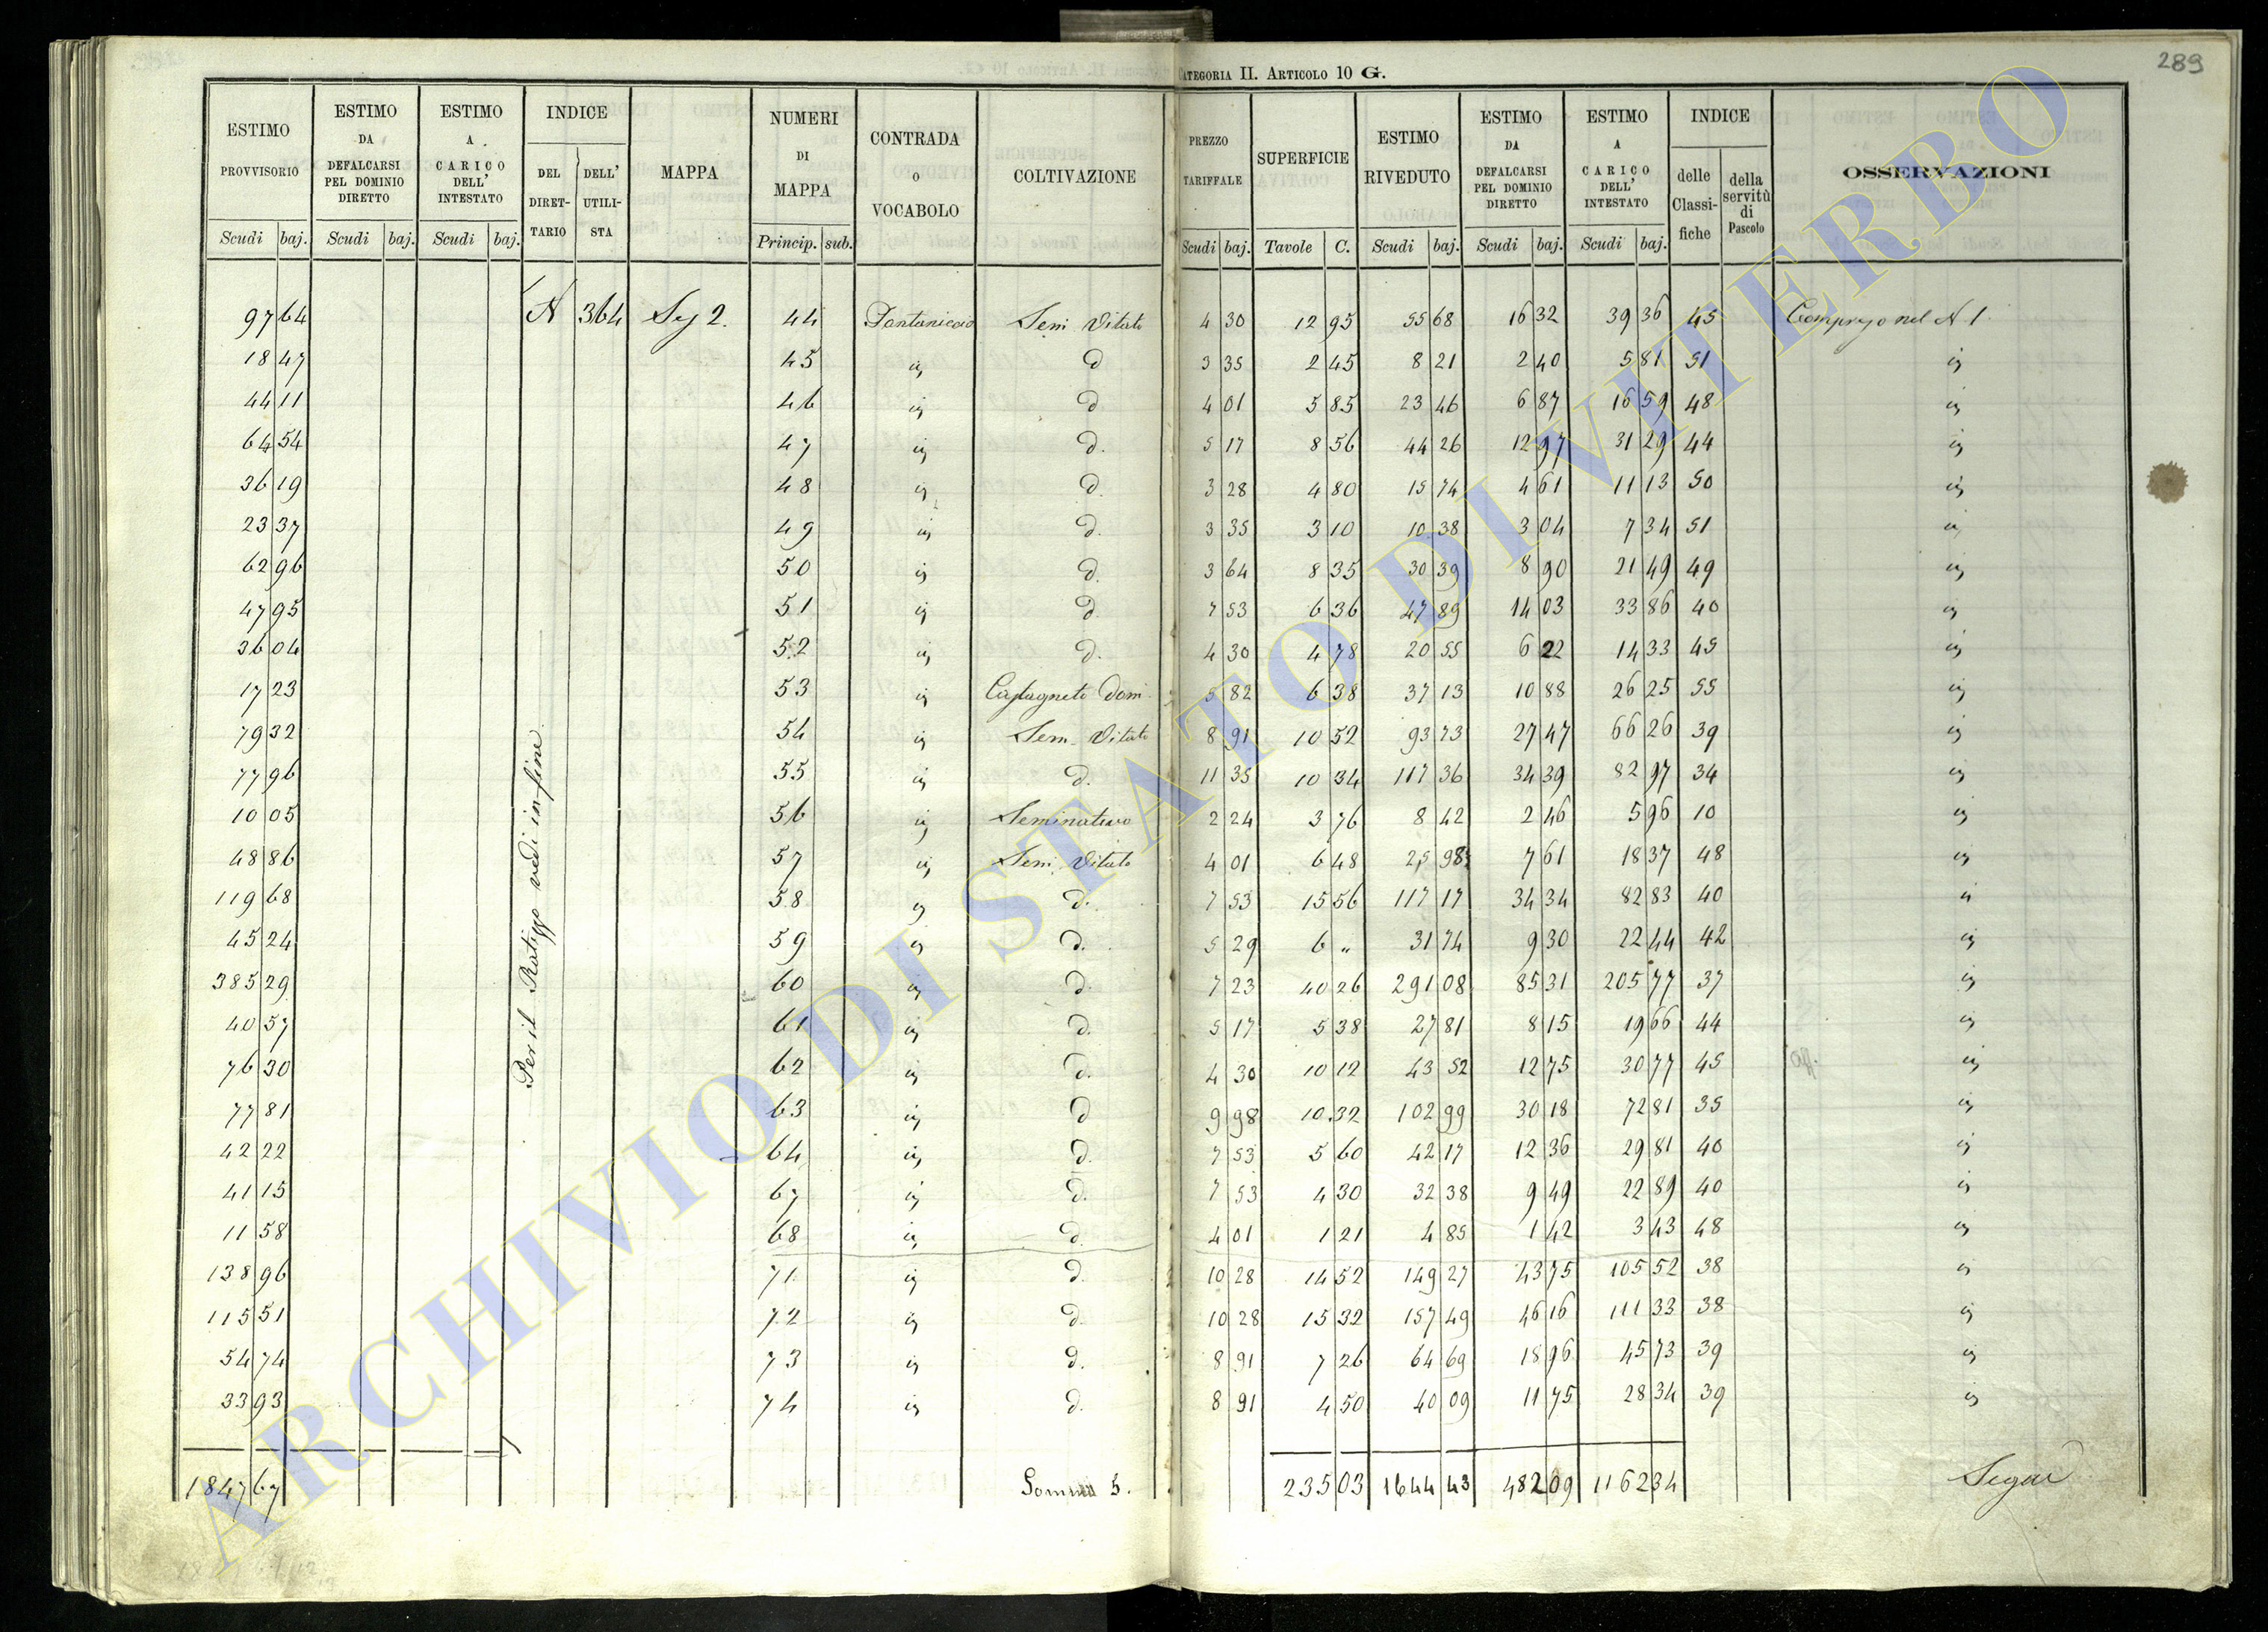 289
CATEGORIA II. ARTICOLO 10 G.
ESTIMO PROVVISORIO | ESTIMO DA DEFALCARSI PEL DOMINIO DIRETTO | ESTIMO A CARICO DELL' INTESTATO | INDICE DEL DIRETTARIO | DELL' UTILISTA | MAPPA | NUMERI DI MAPPA | CONTRADA O VOCABOLO | COLTIVAZIONE | PREZZO TARIFFALE | SUPERFICIE | ESTIMO RIVEDUTO | ESTIMO DA DEFALCARSI PEL DOMINIO DIRETTO | ESTIMO A CARICO DELL' INTESTATO | INDICE delle Classifiche | della servitù di Pascolo | OSSERVAZIONI
Scudi baj. | Scudi baj. | Scudi baj. | Princip. sub. | Scudi baj. | Tavole C. | Scudi baj. | Scudi baj. | Scudi baj.
97 64 N 364 44 Sem. Vitato 4 30 12 95 55 68 16 32 39 36 45 nel N 1
18 47 45 d 3 35 2 45 8 21 2 40 5 81 51
44 11 46 d 4 01 5 85 23 46 6 87 16 59 48
64 54 47 d. 5 17 8 56 44 26 12 97 31 29 44
36 19 48 d. 3 28 4 80 15 74 4 61 11 13 50
23 37 49 d. 3 35 3 10 10 38 3 04 7 34 51
62 96 50 d. 3 64 8 35 30 39 8 90 21 49 49
47 95 51 d. 7 53 6 36 47 89 14 03 33 86 40
36 04 52 d. 4 30 4 78 20 55 6 22 14 33 45
17 23 53 Castagneto Dom. 5 82 6 38 37 13 10 88 26 25 55
79 32 54 Sem. Vitato 8 91 10 52 93 73 27 47 66 26 39
77 96 55 d. 11 35 10 34 117 36 34 39 82 97 34
10 05 56 Seminativo 2 24 3 76 8 42 2 46 5 96 10
48 86 57 Sem. Vitato 4 01 6 48 25 98 7 61 18 37 48
119 68 58 d. 7 53 15 56 117 17 34 34 82 83 40
45 24 59 d. 5 29 6 " 31 74 9 30 22 44 42
385 29 60 d. 7 23 40 26 291 08 85 31 205 77 37
40 57 61 d. 5 17 5 38 27 81 8 15 19 66 44
76 30 62 d. 4 30 10 12 43 52 12 75 30 77 45
77 81 63 d 9 98 10 32 102 99 30 18 72 81 35
42 22 64 d. 7 53 5 60 42 17 12 36 29 81 40
41 15 67 d. 7 53 4 30 32 38 9 49 22 89 40
11 58 68 d. 4 01 1 21 4 85 1 42 3 43 48
138 96 71 d. 10 28 14 52 149 27 43 75 105 52 38
115 51 72 d. 10 28 15 32 157 49 46 16 111 33 38
54 74 73 d. 8 91 7 26 64 69 18 96 45 73 39
33 93 74 d. 8 91 4 50 40 09 11 75 28 34 39
Per il vedi in fine
1847 67 Somma 235 03 1644 43 482 09 1162 34 Segue
ARCHIVIO DI STATO DI VITERBO